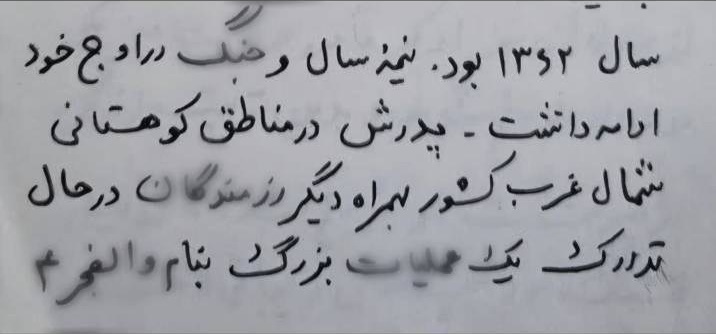 سال ۱۳۶۲ بود. نیمهٔ سال و جنگ در اوج خود
ادامه داشت - پدرش در مناطق کوهستانی
شمال غرب کشور بهمراه دیگر رزمندگان در حال
تدارک یک عملیات بزرگ بنام والفجر ۴